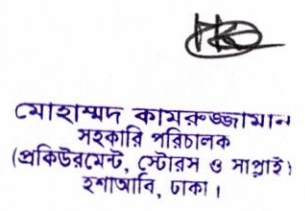 মোহাম্মদ কামরুজ্জামান
সহকারি পরিচালক
(প্রকিউরমেন্ট, স্টোরস ও সাপ্লাই)
হশাআবি, ঢাকা।